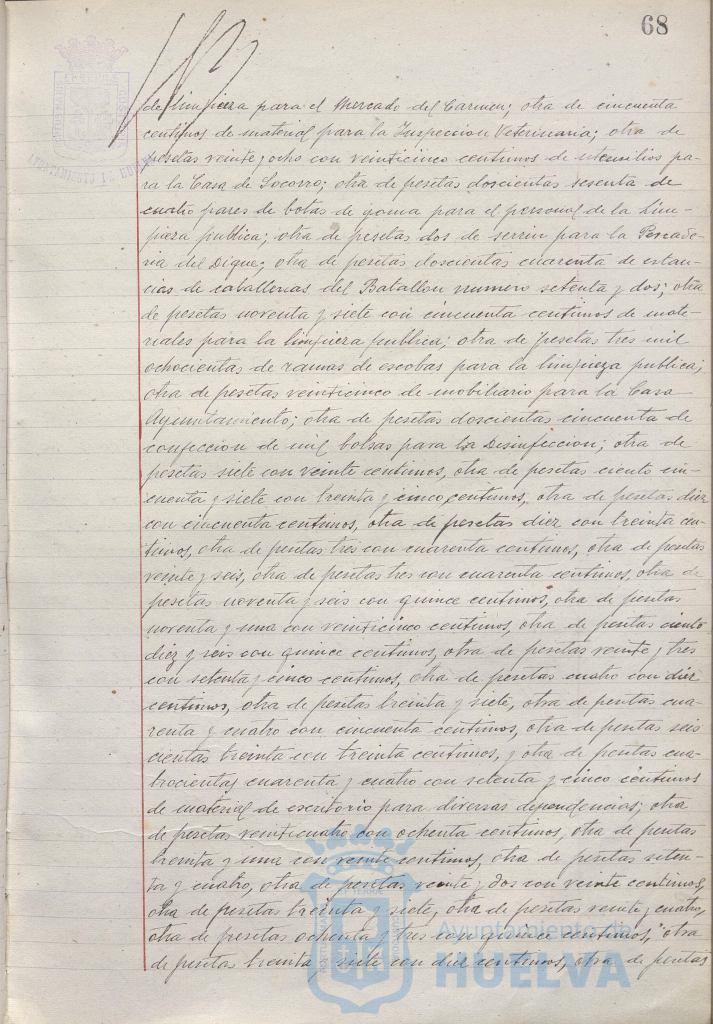 68
de limpieza para el Mercado del Carmen; otra de cincuenta
centimos de material para la Inspeccion Veterinaria; otra de
pesetas veinte y ocho con veinticinco centimos de utensilios pa-
ra la Casa de Socorro; otra de pesetas doscientas sesenta de
cuatro pares de botas de goma para el personal de la Lim-
pieza publica; otra de pesetas dos de serrin para la Pescade-
ria del Dique; otra de pesetas doscientas cuarenta de estan-
cias de caballerias del Batallon numero setenta y dos; otra
de pesetas noventa y siete con cincuenta centimos de mate-
riales para la limpieza publica; otra de pesetas tres mil
ochocientas de ramas de escobas para la limpieza publica;
otra de pesetas veinticinco de mobiliario para la Casa
Ayuntamiento; otra de pesetas doscientas cincuenta de
confeccion de mil bolsas para la Disinfeccion; otra de
pesetas siete con veinte centimos, otra de pesetas ciento cin-
cuenta y siete con treinta y cinco centimos, otra de pesetas diez
con cincuenta centimos, otra de pesetas diez con treinta cen-
timos, otra de pesetas tres con cuarenta centimos, otra de pesetas
veinte y seis, otra de pesetas tres con cuarenta centimos, otra de
pesetas noventa y seis con quince centimos, otra de pesetas
noventa y una con veinticinco centimos, otra de pesetas ciento
diez y seis con quince centimos, otra de pesetas veinte y tres
con setenta y cinco centimos, otra de pesetas cuatro con diez
centimos, otra de pesetas treinta y siete, otra de pesetas cua-
renta y cuatro con cincuenta centimos, otra de pesetas seis
cientas treinta con treinta centimos, y otra de pesetas cua-
trocientas cuarenta y cuatro con setenta y cinco centimos
de material de escritorio para diversas dependencias; otra
de pesetas veinticuatro con ochenta centimos, otra de pesetas
treinta y una con veinte centimos, otra de pesetas seten-
ta y cuatro, otra de pesetas veinte y dos con veinte centimos,
otra de pesetas treinta y siete, otra de pesetas veinte y cuatro,
otra de pesetas ochenta y tres con quince centimos, otra
de pesetas treinta y siete con diez centimos, otra de pesetas
Ayuntamiento de
HUELVA